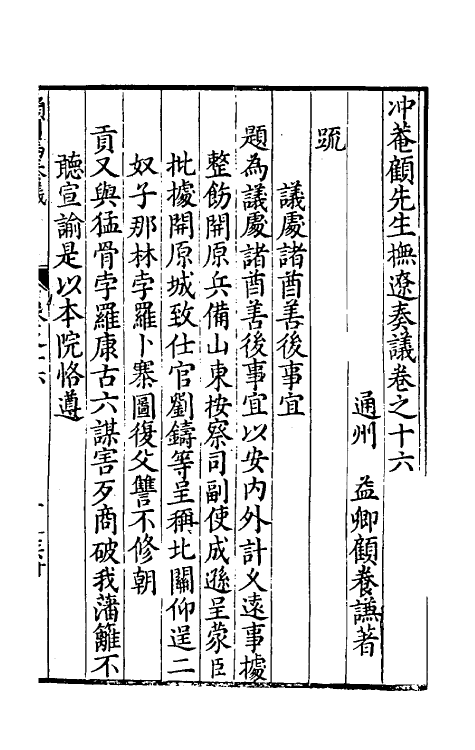 冲菴顧先生撫遼奏議卷之十六
通州　益卿顧養謙著
䟽
議處諸酋善後事宜
題為議處諸酋善後事宜以安内外計乂遠事據
整飭開原兵備山東按察司副使成遜呈蒙臣
批據開原城致仕官劉鑄等呈稱北關仰逞二
奴子那林孛羅卜寨圖復父讐不修朝
貢又與猛骨孛羅康古六謀害歹商破我藩籬不
聽宣諭是以本院恪遵